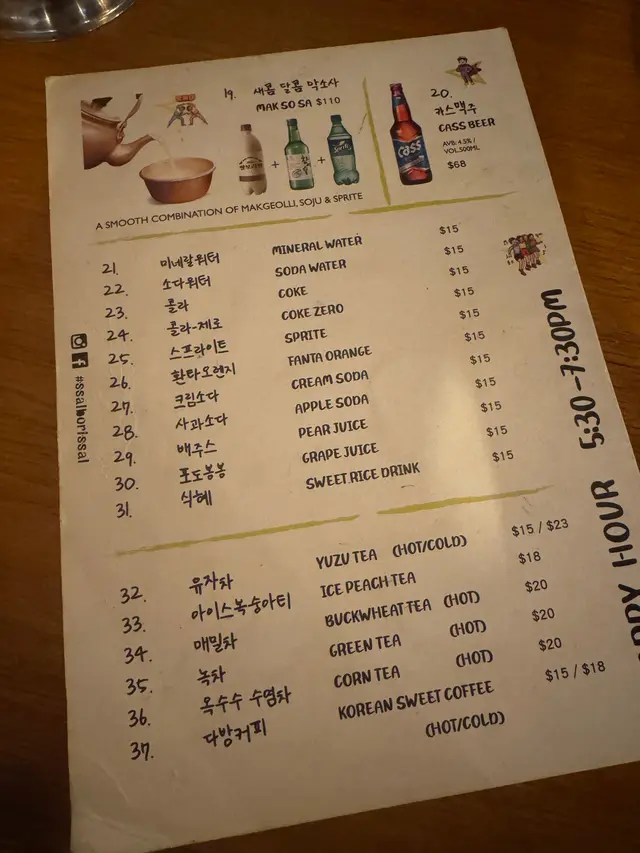 19. 새콤 달콤 막소사
MAK SO SA $110
A SMOOTH COMBINATION OF MAKGEOLLI, SOJU & SPRITE
20.
카스맥주
CASS BEER
AVB: 4.5% /
VOL.500ML
$68
Cass
Sprite
21. 미네랄워터 MINERAL WATER $15
22. 소다워터 SODA WATER $15
23. 콜라 COKE $15
24. 콜라-제로 COKE ZERO $15
25. 스프라이트 SPRITE $15
26. 환타오렌지 FANTA ORANGE $15
27. 크림소다 CREAM SODA $15
28. 사과소다 APPLE SODA $15
29. 배주스 PEAR JUICE $15
30. 포도봉봉 GRAPE JUICE $15
31. 식혜 SWEET RICE DRINK $15
32. 유자차 YUZU TEA (HOT/COLD) $15 / $23
33. 아이스복숭아티 ICE PEACH TEA $18
34. 매밀차 BUCKWHEAT TEA (HOT) $20
35. 녹차 GREEN TEA (HOT) $20
36. 옥수수 수염차 CORN TEA (HOT) $20
37. 다방커피 KOREAN SWEET COFFEE $15 / $18
(HOT/COLD)
#ssalborissal
HOUR 5:30-7:30PM